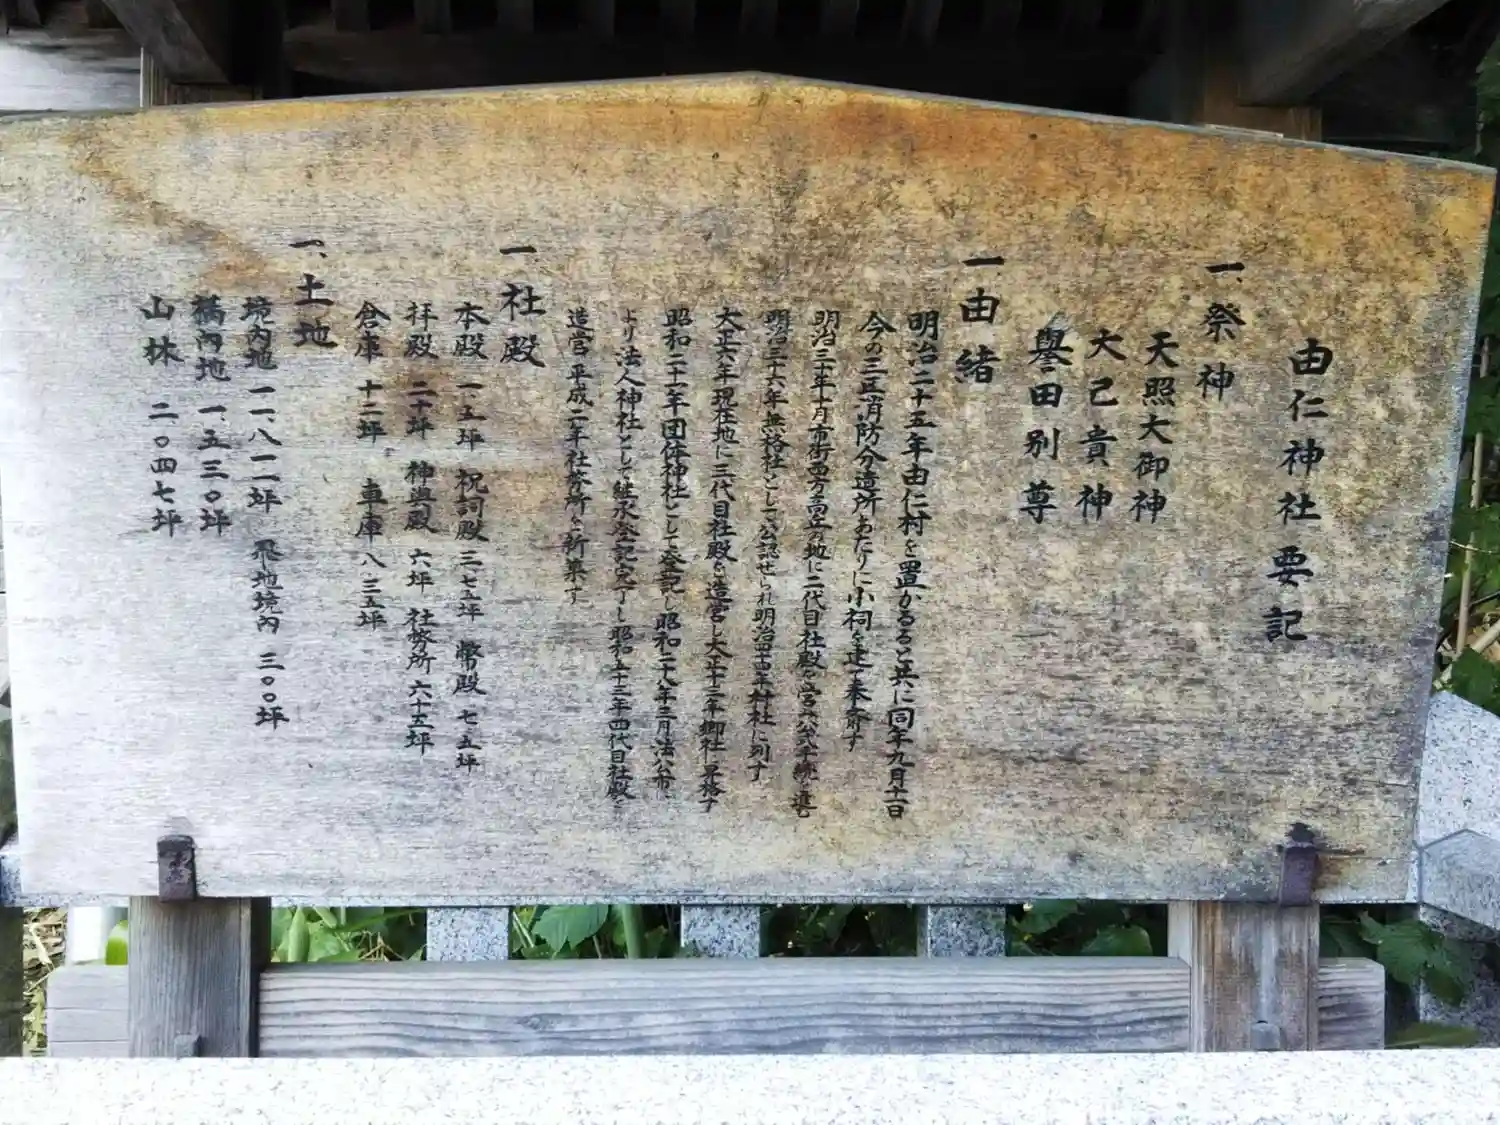 由仁神社要記
一、祭神
天照大御神
大己貴神
譽田別尊
一由緒
明治二十五年由仁村を置かるると共に同年九月十一日
今の三区消防分遣所あたりに小祠を建て奉斎す
明治三十年十月市街西方高丘の地に二代目社殿を営み公式手続を進む
明治三十六年無格社として公認せられ明治四十四年村社に列す
大正六年現在地に三代目社殿を造営し大正十三年郷社に昇格す
昭和二十一年団体神社として登記し昭和二十八年三月法公布に
より法人神社として継承登記完了し昭和五十三年四代目社殿を
造営平成二年社務所を新築す
一社殿
本殿 一、五坪 祝詞殿 三、七五坪 幣殿 七、五坪
拝殿 二十坪 神輿殿 六坪 社務所 六十三坪
倉庫 十二坪 車庫 八、三五坪
一、土地
境内地 一一、八一一坪 飛地境内 三〇〇坪
構内地 一、五三〇坪
山林 二、〇四七坪